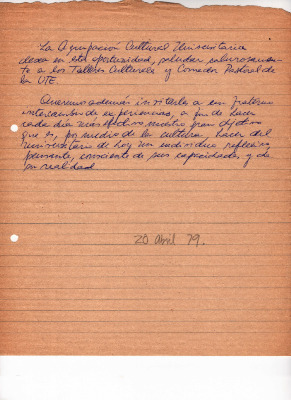 La Agrupación Cultural Universitaria
desea en esta oportunidad, saludar calurosamen-
te a los Talleres Culturales y Comedor Pastoral de
la UTE.
Queremos además invitarles a un fraterno
intercambio de experiencias, a fin de hacer
cada día más efectivo nuestro gran objetivo
que es, por medio de la cultura, hacer del
universitario de hoy un individuo reflexivo,
pensante, consciente de sus capacidades y de
su realidad
20 abril 79.